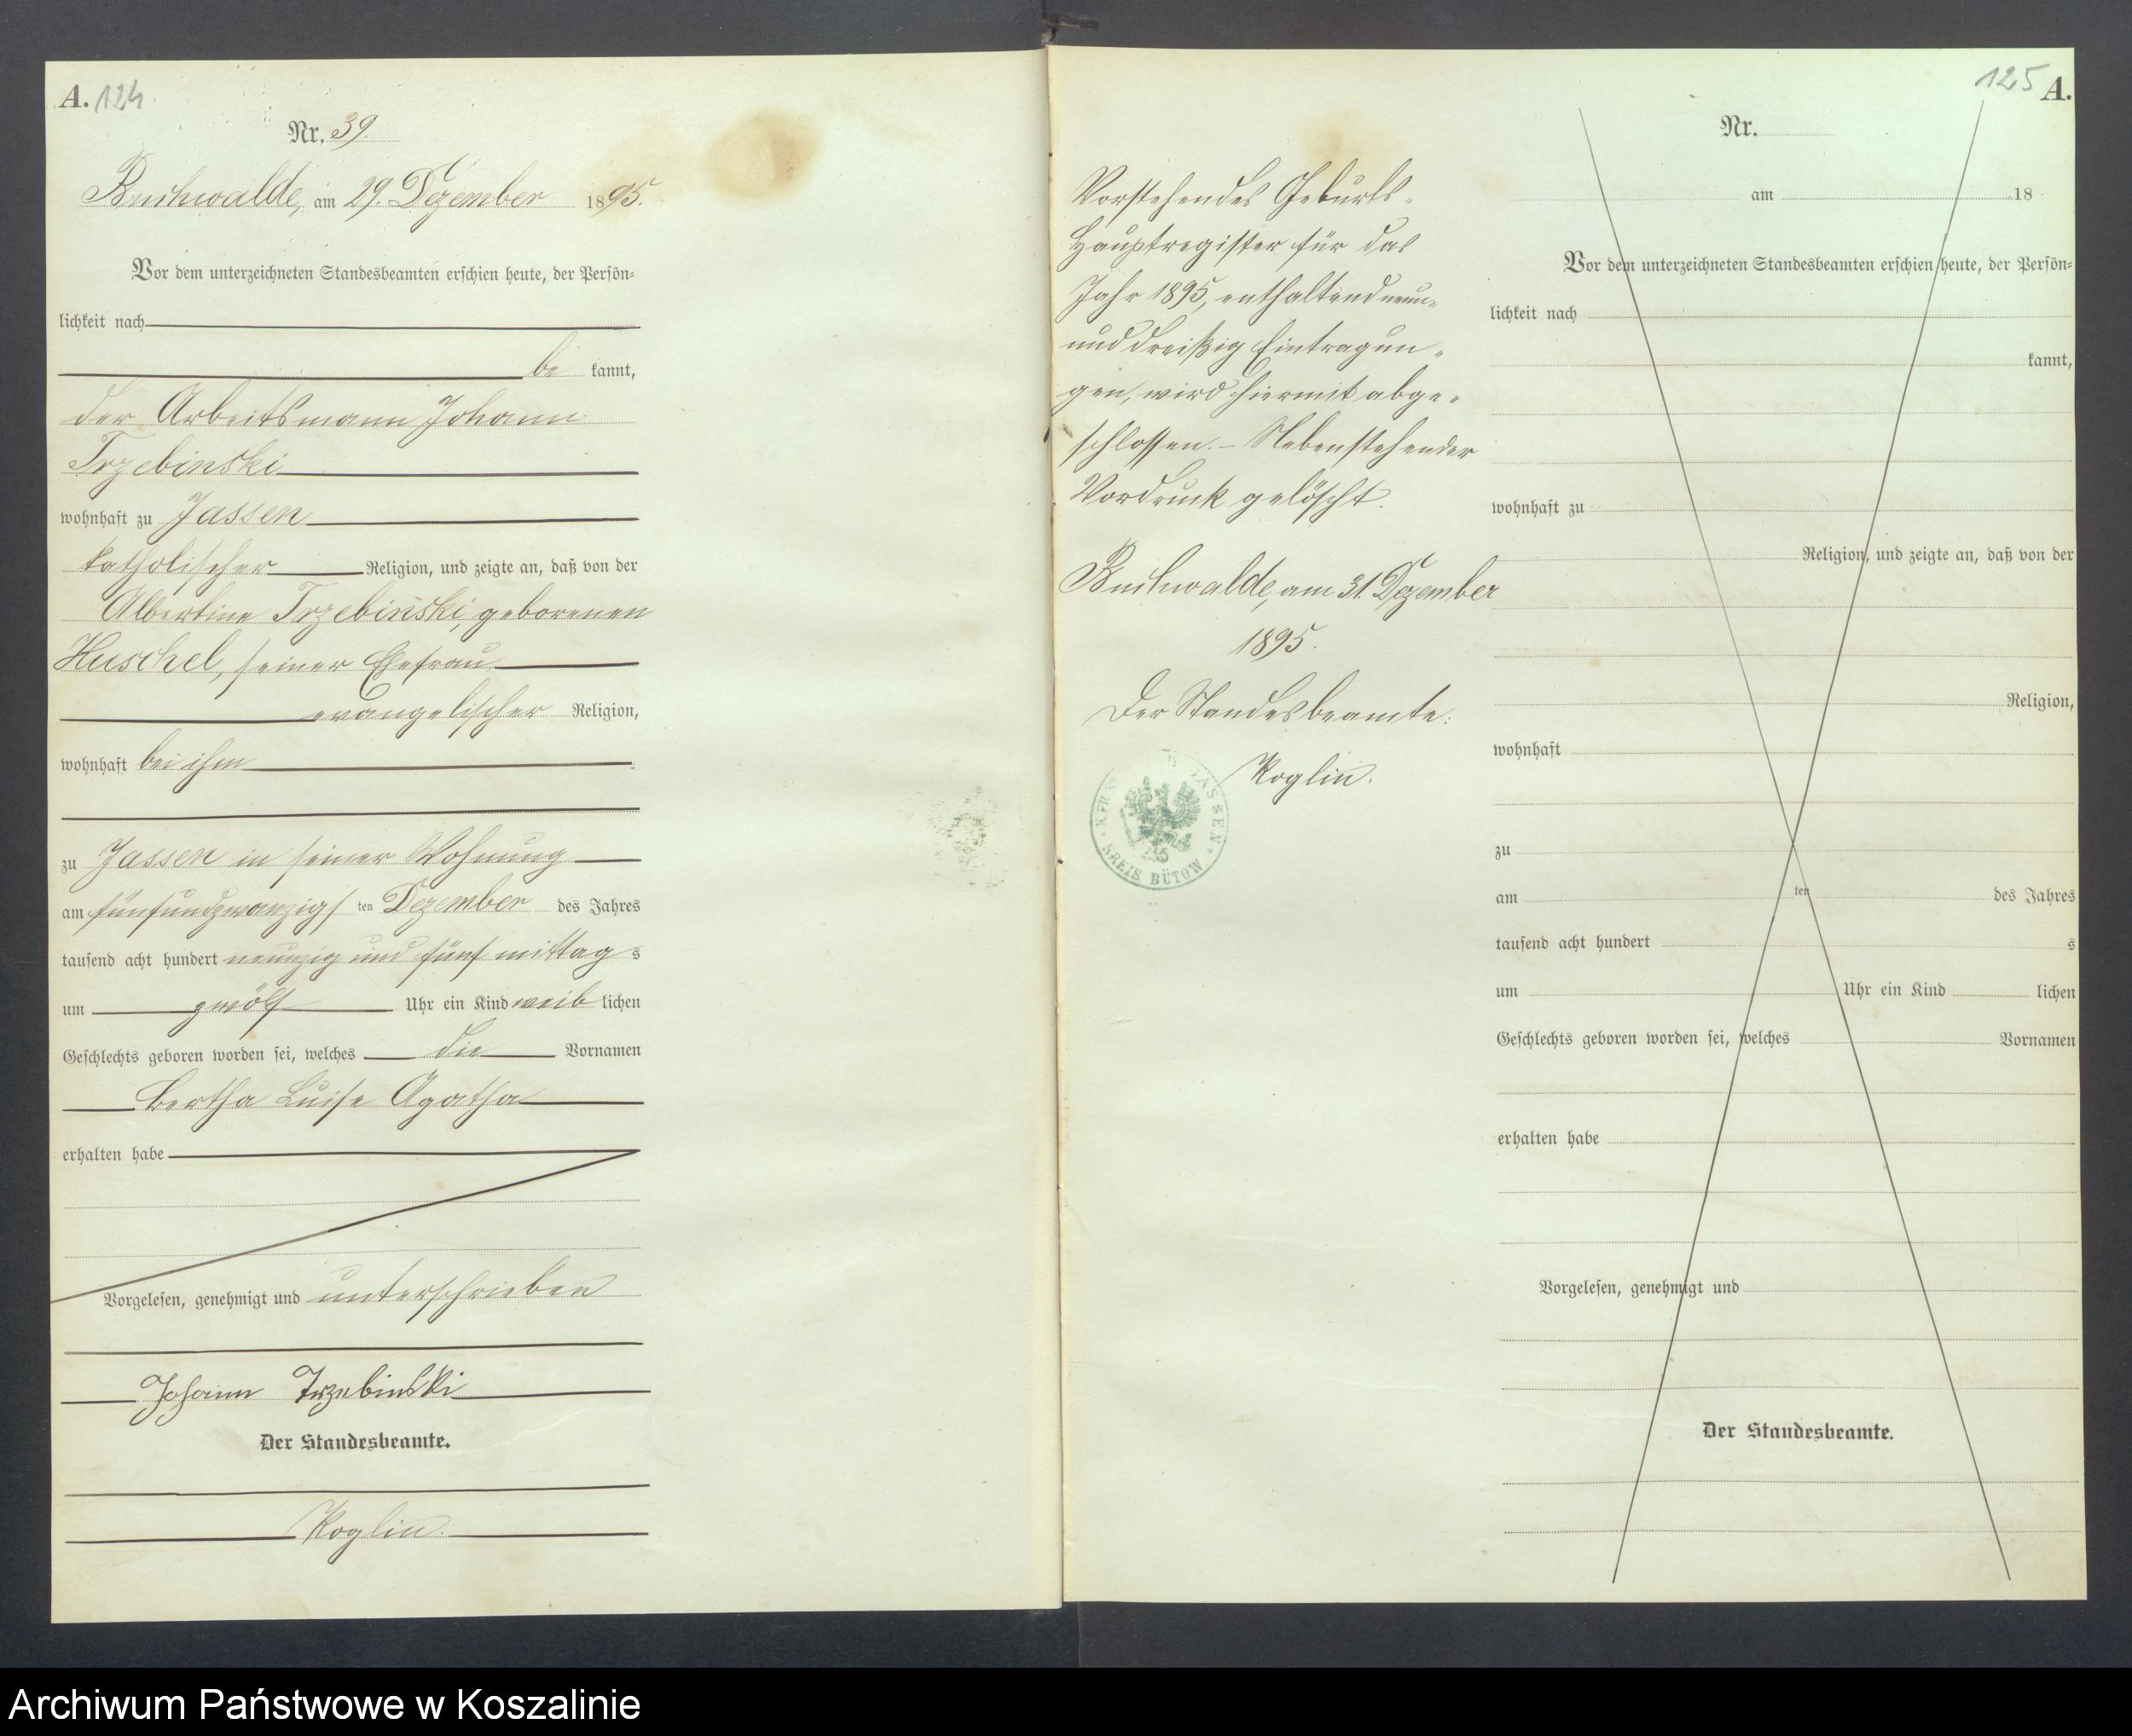 A. 124
Nr. 39.
Buchwalde, am 29. Dezember 1895.
Vor dem unterzeichneten Standesbeamten erschien heute, der Persön-
lichkeit nach
be kannt,
der Arbeitsmann Johann
Trzebinski
wohnhaft zu Jassen
katholischer Religion, und zeigte an, daß von der
Albertine Trzebinski, geborenen
Huschel, seiner Ehefrau
evangelischer Religion,
wohnhaft bei ihm
zu Jassen in seiner Wohnung
am fünfundzwanzigs ten Dezember des Jahres
tausend acht hundert neunzig und fünf mittag s
um zwölf Uhr ein Kind weib lichen
Geschlechts geboren worden sei, welches die Vornamen
Bertha Luise Agatha
erhalten habe
Vorgelesen, genehmigt und unterschrieben
Johann Trzebinski
Der Standesbeamte.
Koglin.
Vorstehendes Geburts-
Hauptregister für das
Jahr 1895, enthaltend neun-
unddreißig Eintragun-
gen, wird hiermit abge-
schlossen. - Nebenstehender
Vordruck gelöscht.
Buchwalde, am 31. Dezember
1895.
Der Standesbeamte:
Koglin.
JASSEN
KREIS BÜTOW
125 A.
Nr.
am 18
Vor dem unterzeichneten Standesbeamten erschien heute, der Persön-
lichkeit nach
kannt,
wohnhaft zu
Religion, und zeigte an, daß von der
Religion,
wohnhaft
zu
am ten des Jahres
tausend acht hundert s
um Uhr ein Kind lichen
Geschlechts geboren worden sei, welches Vornamen
erhalten habe
Vorgelesen, genehmigt und
Der Standesbeamte.
Archiwum Państwowe w Koszalinie